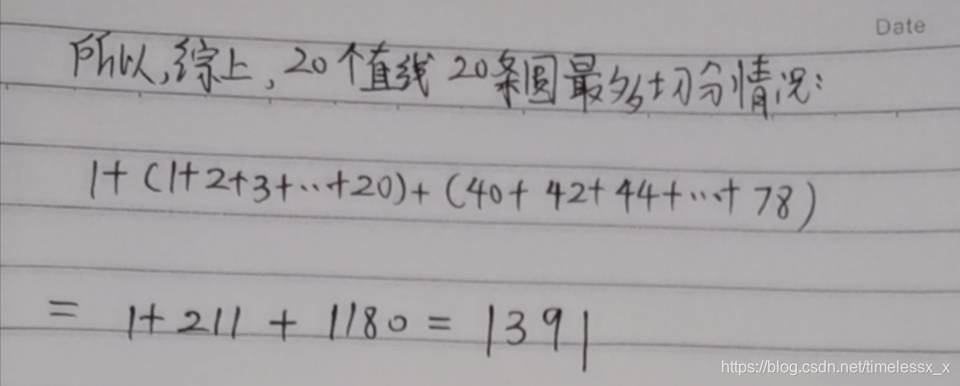 Date
所以,综上,20个直线20条圆最多切分情况:
1+(1+2+3+...+20)+(40+42+44+...+78)
= 1+211+1180=1391
https://blog.csdn.net/timelessx_x